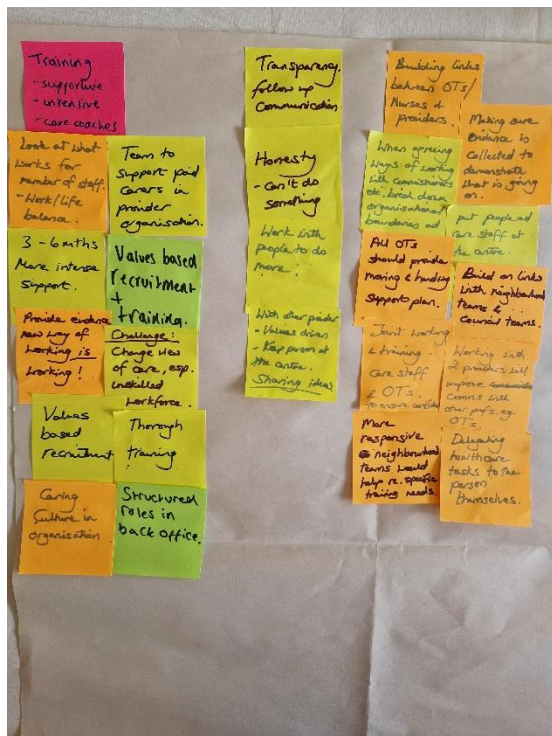 Training
- supportive
- intensive
- care coaches
Look at what
works for
number of staff.
- Work/life
balance.
Team to
support paid
carers in
provider
organisation.
3 - 6 mths
More intense
support.
Values based
recruitment
+
training.
Provide evidence
new way of
working is
working!
Challenge!
Change view
of care, esp.
installed
workforce.
Values
based
recruitment
Thorough
training
Caring
Culture in
organisation
Structured
roles in
back office.
Transparency.
follow up
Communication
Honesty
- Can't do
something
Work with
people to do
more.
With other provider
- Values driven
- Keep person at
the centre.
Sharing ideas
Building links
between OTs/
Nurses &
providers.
Making sure
evidence is
collected to
demonstrate
what is going
on.
When agreeing
ways of working
with commissioners
etc. break down
organisational
boundaries and
put people and
care staff at
the centre.
All OTs
should provide
moving & handling
support plan.
Build on links
with neighbourhood
teams &
Council teams.
Joint working
& training.
care staff
& OTs.
to ensure
Working with
2 providers will
improve
comms with
other profs. eg.
OTs.
More
responsive
neighbourhood
teams would
help re. specific
training needs.
Delegating
healthcare
tasks to the
person
themselves.